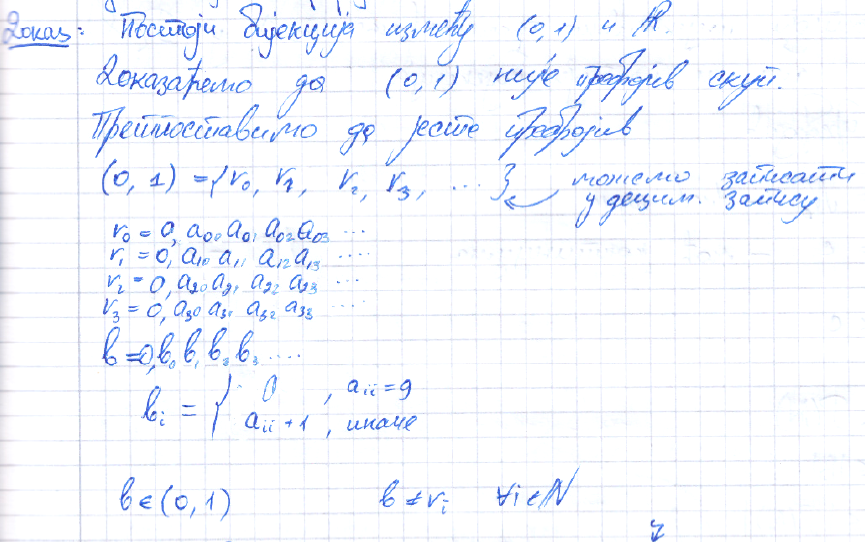 Доказ: Постоји бијекција између (0,1) и ℝ.
Доказаћемо да (0,1) није пребројив скуп.
Претпоставимо да јесте пребројив
(0,1) = {r₀, r₁, r₂, r₃, ...} можемо записати
у децим. запису
r₀ = 0, a₀₀ a₀₁ a₀₂ a₀₃ ...
r₁ = 0, a₁₀ a₁₁ a₁₂ a₁₃ ....
r₂ = 0, a₂₀ a₂₁ a₂₂ a₂₃ ...
r₃ = 0, a₃₀ a₃₁ a₃₂ a₃₃ ....
b = 0, b₀ b₁ b₂ b₃ ....
bᵢ = { 0 , aᵢᵢ = 9
aᵢᵢ + 1 , иначе
b ∈ (0,1) b ≠ rᵢ ∀i ∈ ℕ